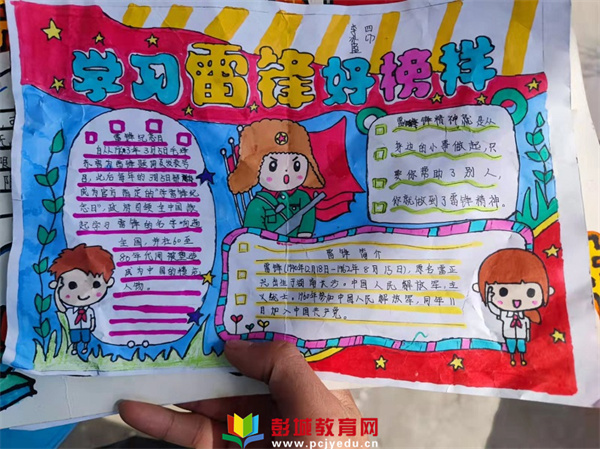 四
学习雷锋好榜样
雷锋纪念日
自从1963年3月5日毛泽
东
月，此后每年的3月5日
成为官方指定的“学雷锋纪
念日”，政府
起学习雷锋的名字响遍
全国，并在60至
80年代
成为中国的
人物。
雷锋精神就是从
身边的小事做起，只
要你帮助了别人，
你就做到了雷锋精神。
雷锋简介
雷锋(1940年12月18日-1962年8月15日)，原名雷正
兴出生于湖南长沙。中国人民解放军
战士。1960年参加中国人民解放军，同年11
月加入中国共产党。
彭城教育网
www.pcjyedu.cn